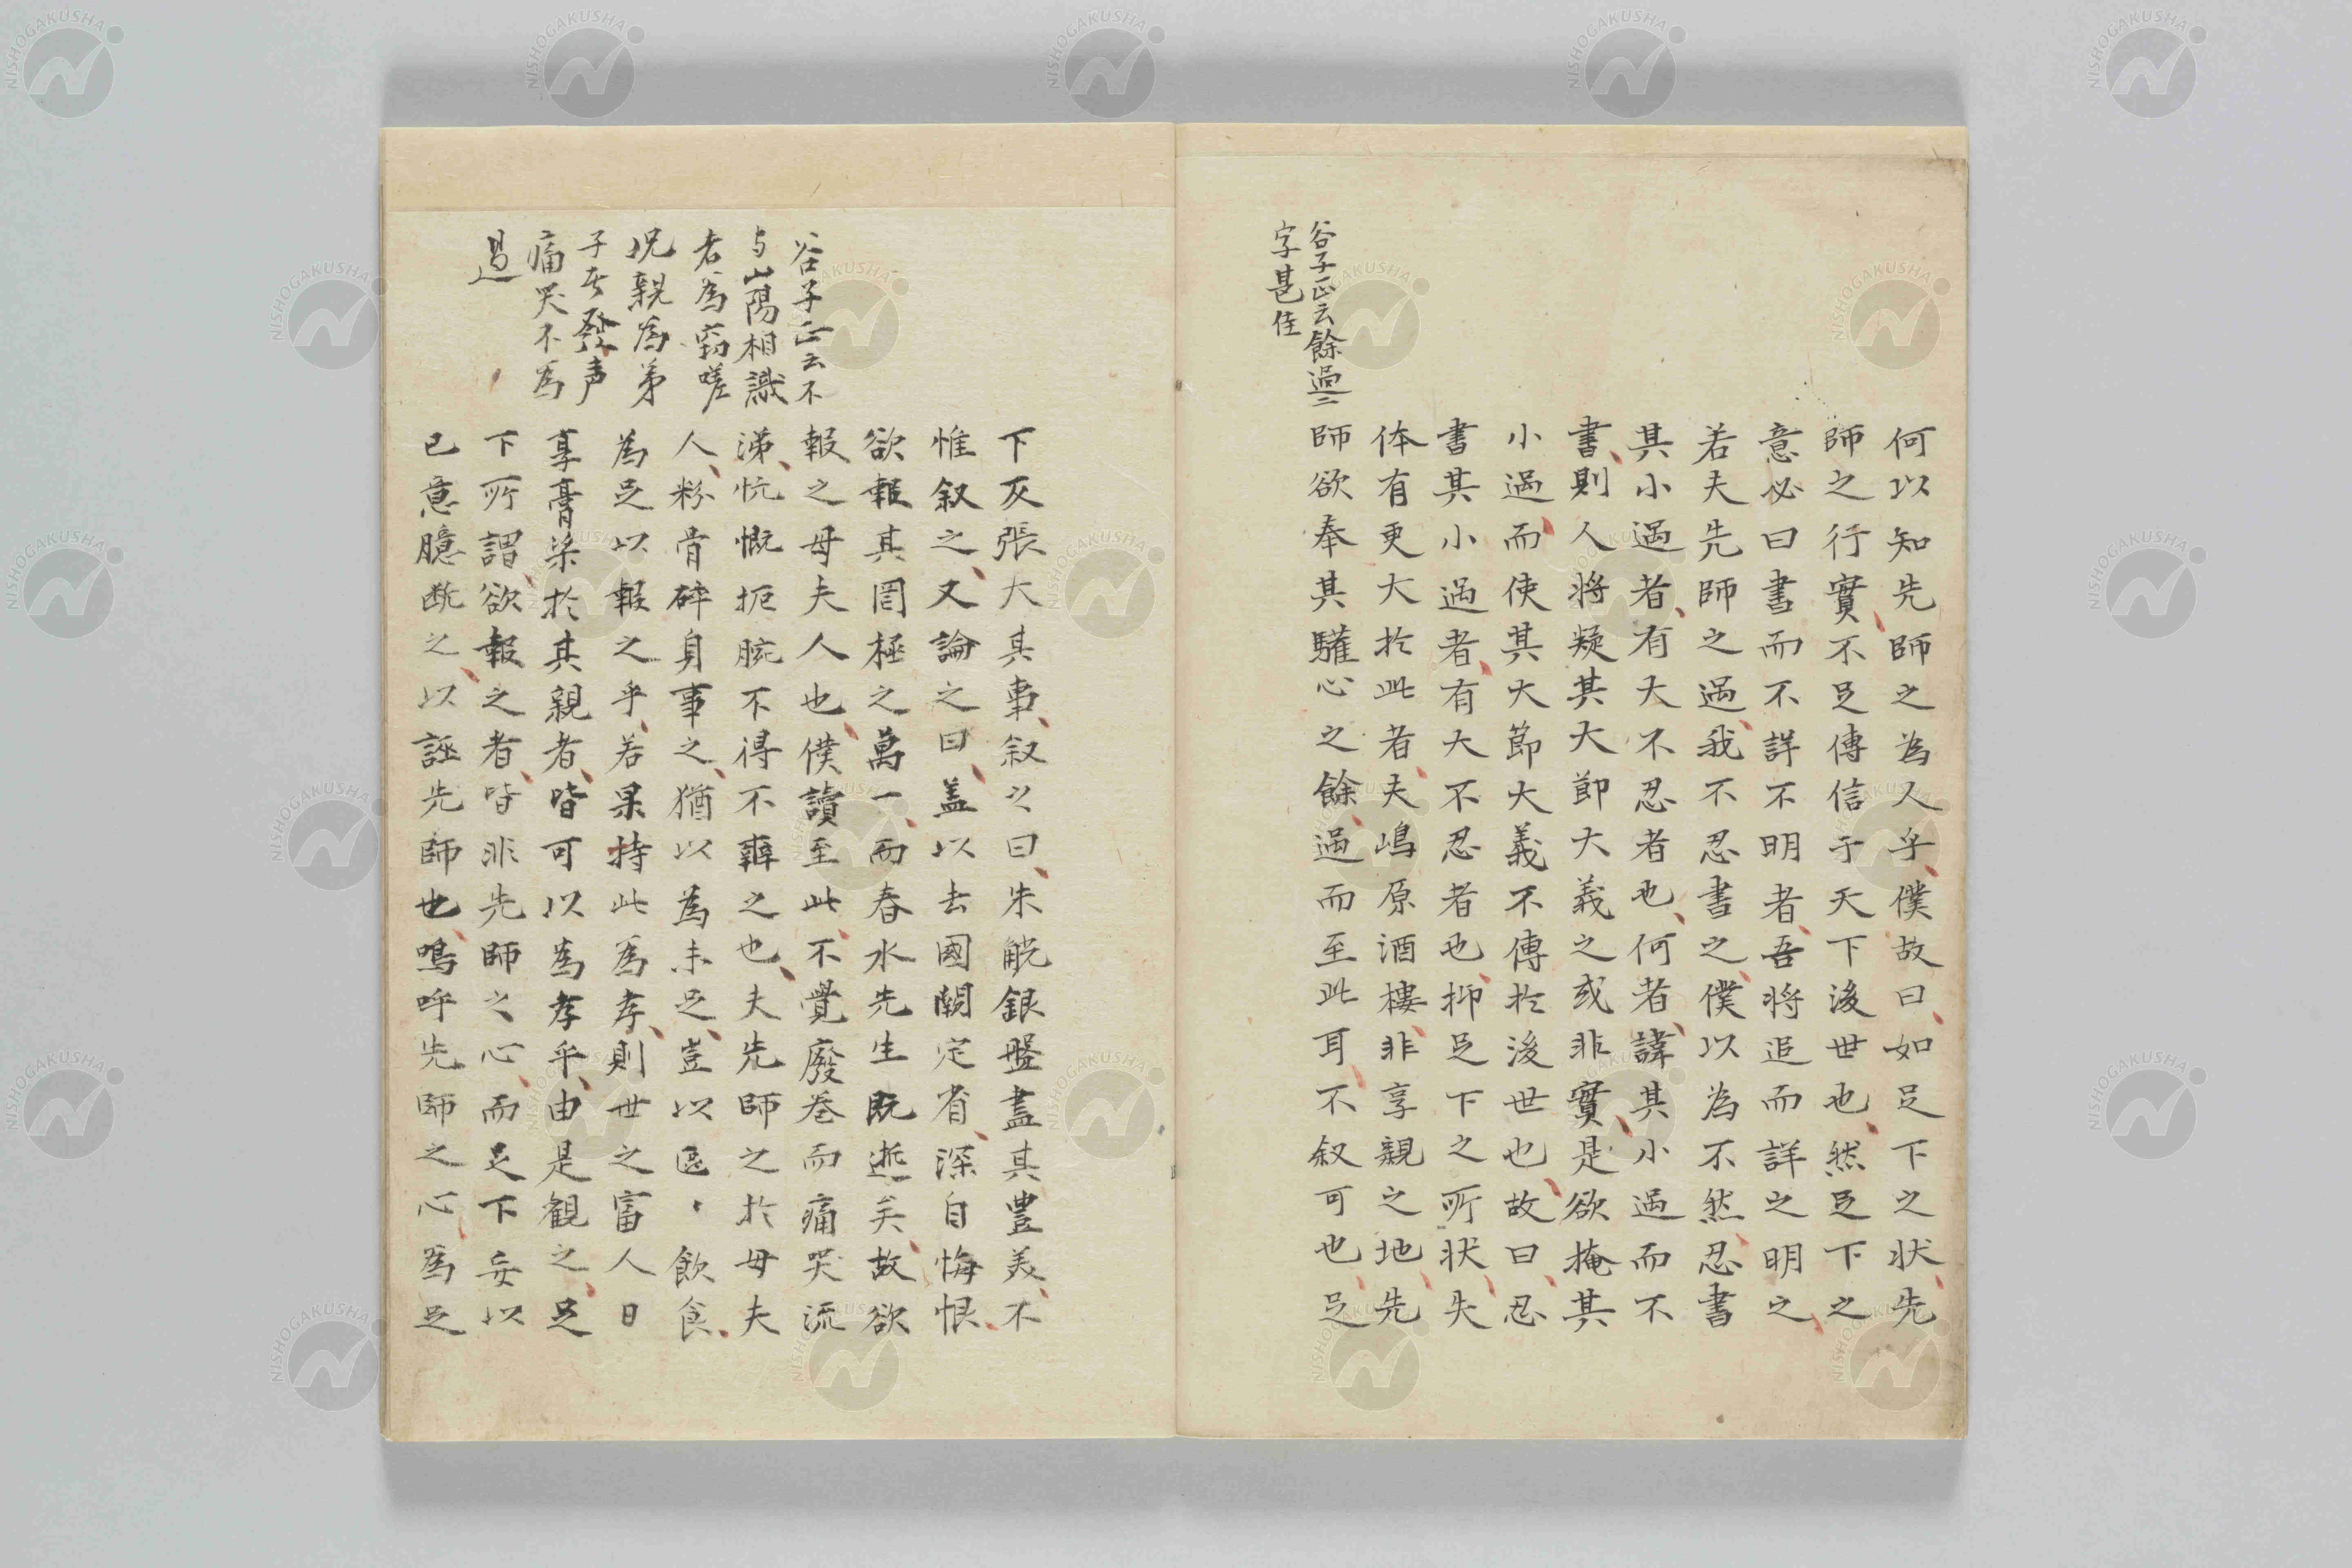 何以知先師之為人乎僕故曰如足下之状先
師之行實不足傳信于天下後世也然足下之
意必曰書而不詳不明者吾将追而詳之明之
若夫先師之過我不忍書之僕以為不然忍書
其小過者有大不忍者也何者諱其小過而不
書則人将疑其大節大義之或非實是欲掩其
小過而使其大節大義不傳於後世也故曰忍
書其小過者有大不忍者也抑足下之所状失
体有更大於此者夫嶋原酒樓非享親之地先
師欲奉其驩心之餘過而至此耳不叙可也足
谷子正云餘過二
字甚佳
下反張大其事叙之曰朱觥銀盤盡其豊美不
惟叙之又論之曰盖以去國闕定省深自悔恨
欲報其罔極之萬一而春水先生既逝矣故欲
報之母夫人也僕讀至此不覺廢巻而痛哭流
涕忼慨扼腕不得不辨之也夫先師之於母夫
人粉骨碎身事之猶以為未足豈以區〻飲食
為足以報之乎若果持此為孝則世之富人日
享膏粱於其親者皆可以為孝乎由是観之足
下所謂欲報之者皆非先師之心而足下妄以
已意臆断之以誣先師也嗚呼先師之心為足
谷子正云不
与山陽相識
者為窃嗟
况親為弟
子者發声
痛哭不為
過
NISHOGAKUSHA